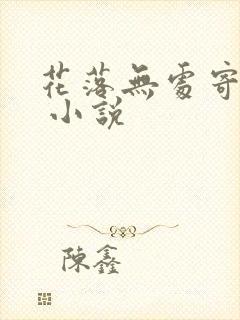 花落無處寄
小說
陳鑫